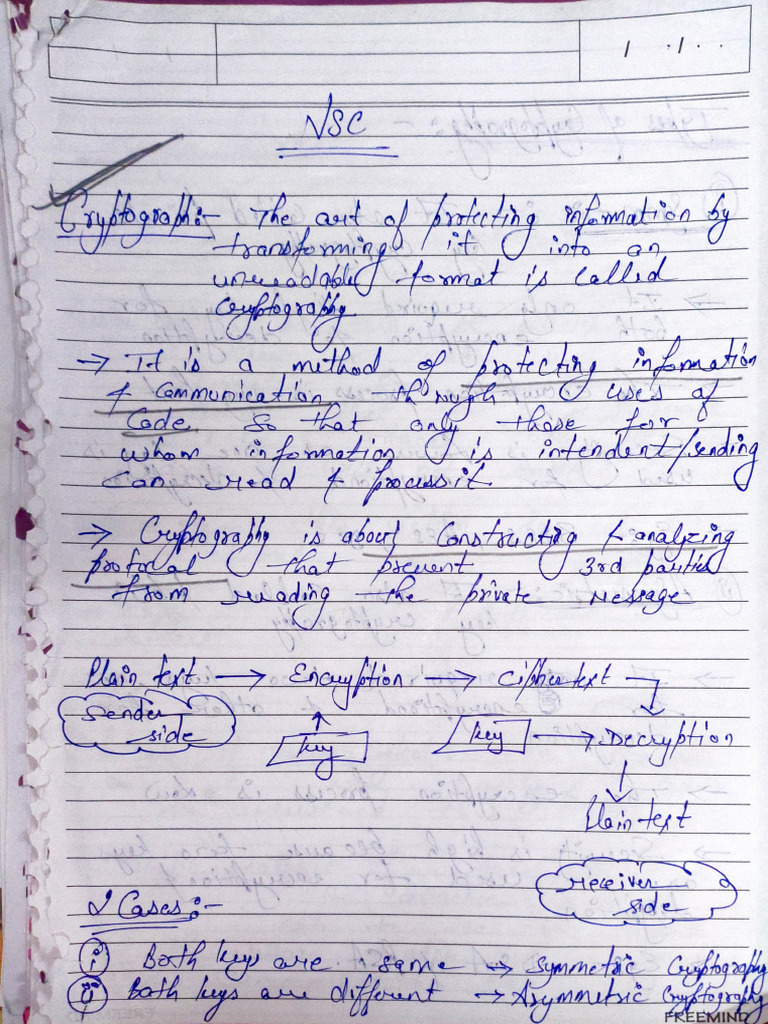 NSC
Cryptograph:- The art of protecting information by
transforming it into an
unreadable format is called
Cryptography
→ It is a method of protecting information
& Communication through uses of
Code. So that only those for
whom information is intendent/sending
can read & process it.
→ Cryptography is about Constructing & analyzing
protocal that prevent 3rd parties
from reading the private message
Plain text → Encryption → Cipher text
Sender side
key
key → Decryption
Plain text
receiver side
2 Cases:-
(i) Both keys are same → Symmetric Cryptography
(ii) Both keys are different → Asymmetric Cryptography
FREEMIND